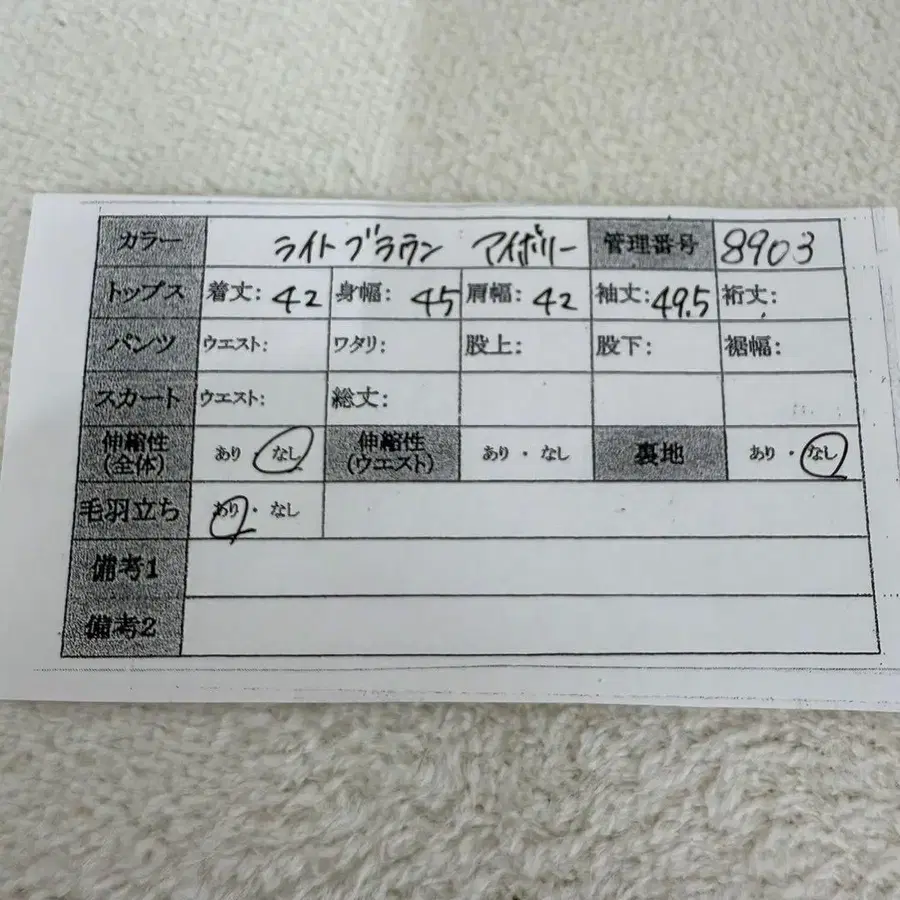 カラー ライトブラウン アイボリー 管理番号 8903
トップス 着丈: 42 身幅: 45 肩幅: 42 袖丈: 49.5 裄丈:
パンツ ウエスト: ワタリ: 股上: 股下: 裾幅:
スカート ウエスト: 総丈:
伸縮性(全体) あり・なし 伸縮性(ウエスト) あり・なし 裏地 あり・なし
毛羽立ち あり・なし
備考1
備考2